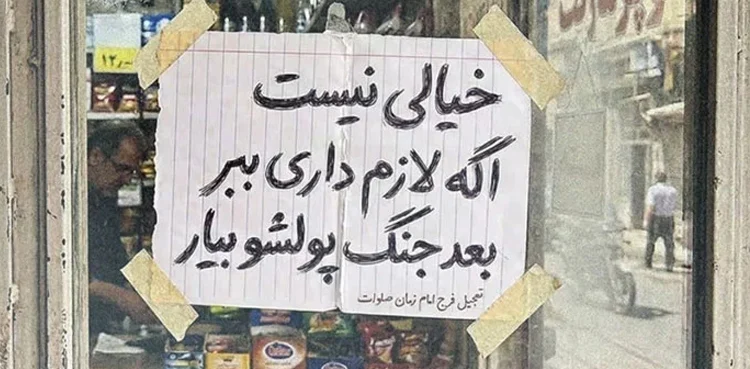 خیالی نیست
اگه لازم داری ببر
بعد جنگ پولشو بیار
تعجیل فرج امام زمان صلوات
۱۲,۰۰